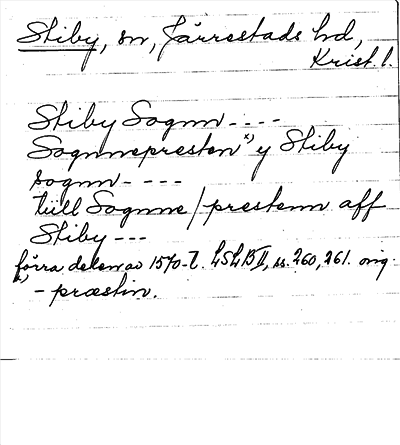 Stiby, sn, Järrestads hd,
Krist. l.
Stiby Sognn ----
Sognnepresten x) y Stiby
sognn- ---
till Sognne/prestenn aff
Stiby ---
förra delen av 1570-t. LSLB II, ss. 260, 261. orig.
x) - præstin.